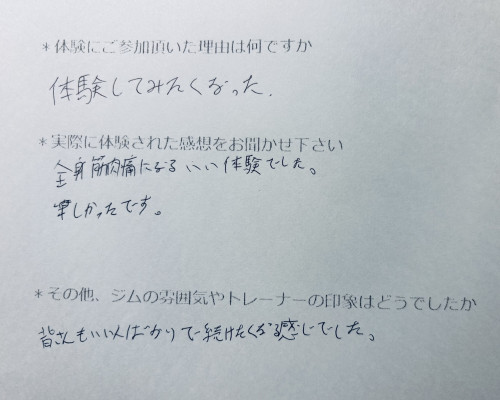 *体験にご参加頂いた理由は何ですか
体験してみたくなった.
*実際に体験された感想をお聞かせ下さい
全身筋肉痛になるいい体験でした。
楽しかったです。
*その他、ジムの雰囲気やトレーナーの印象はどうでしたか
皆さんもいい人ばかりで続けたくなる感じでした。